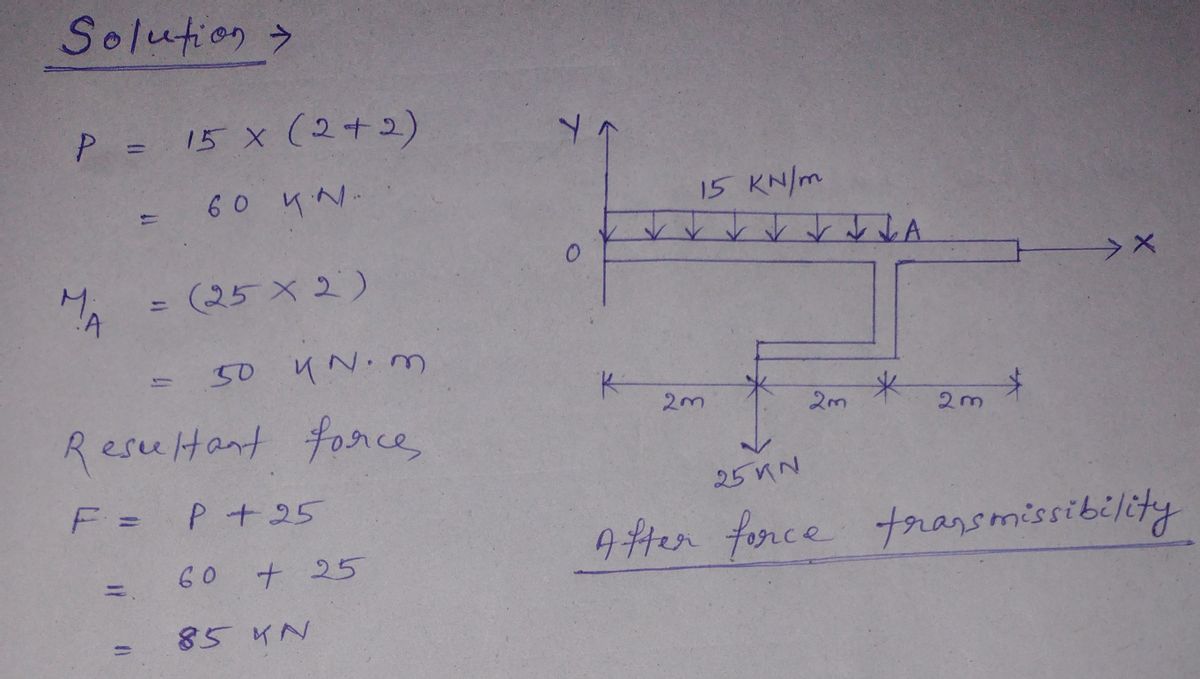 Solution →
P = 15 × (2+2)
= 60 KN.
M_A = (25 × 2)
= 50 KN.m
Resultant force,
F = P + 25
= 60 + 25
= 85 KN
Y
15 KN/m
A
O
X
2m 2m 2m
25 KN
After force transmissibility